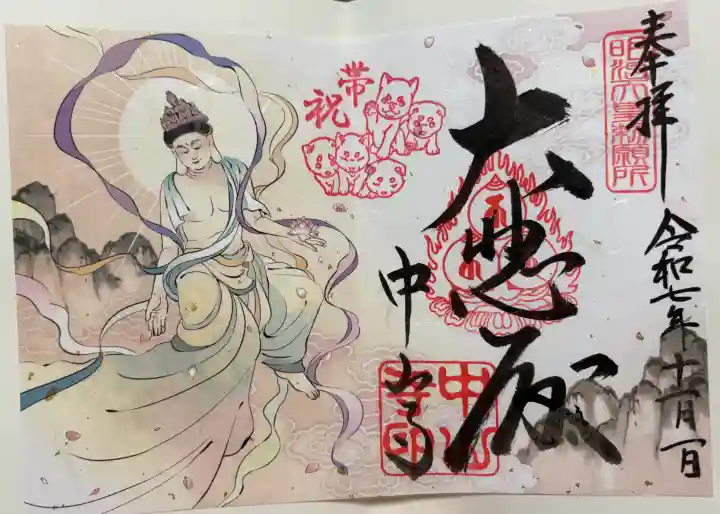 奉拝
明治天皇勅願所
令和七年十一月一日
大悲殿
中山寺
中山寺印
帯祝